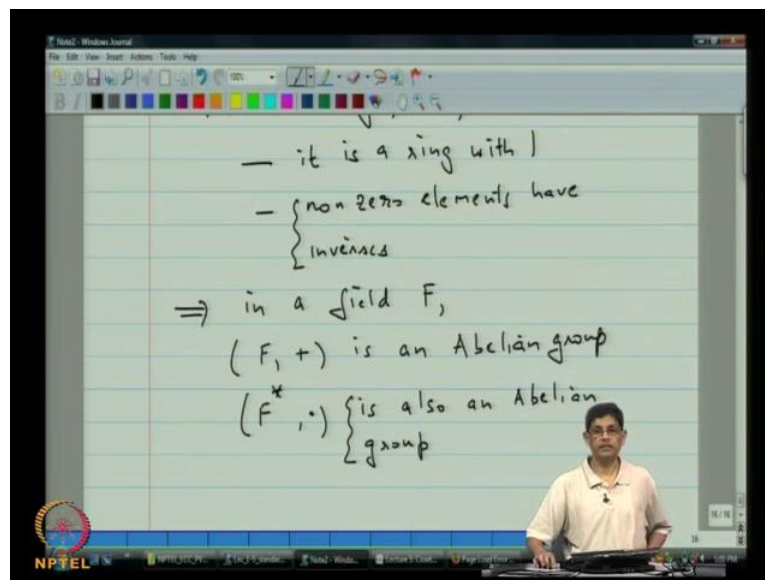 Note2 - Windows Journal
File Edit View Insert Actions Tools Help
100%
B I
— it is a ring with 1
- { non zero elements have
inverses
⇒ in a field F,
(F, +) is an Abelian group
(F*, ·) { is also an Abelian
group
16 / 16
16
NPTEL
Note2 - Windo...
5:00 PM